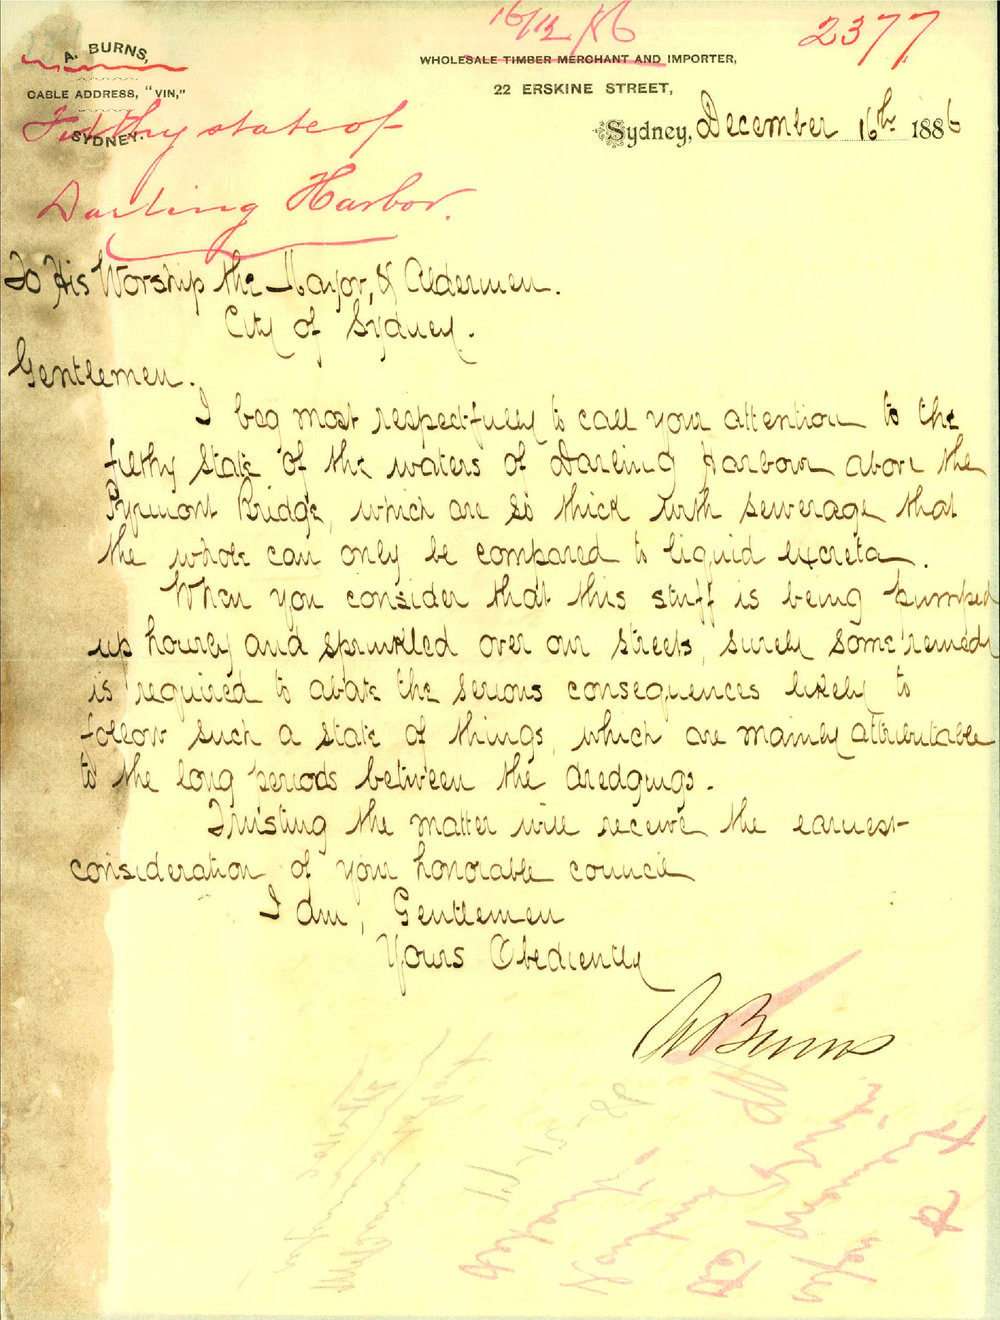 16/12/86
2377
A. BURNS,
CABLE ADDRESS, "VIN,"
SYDNEY.
WHOLESALE TIMBER MERCHANT AND IMPORTER,
22 ERSKINE STREET,
Sydney, December 16th 1886
Filthy state of
Darling Harbor.
To His Worship the Mayor, & Aldermen.
City of Sydney.
Gentlemen.
I beg most respectfully to call your attention to the
filthy state of the waters of Darling Harbour above the
Pyrmont Bridge, which are so thick with sewerage that
the whole can only be compared to liquid excreta.
When you consider that this stuff is being pumped
up hourly and sprinkled over our streets, surely some remedy
is required to abate the serious consequences likely to
follow such a state of things, which are mainly attributable
to the long periods between the dredgings.
Trusting the matter will receive the earnest
consideration of your honorable council
I am, Gentlemen
Yours Obediently
A Burns